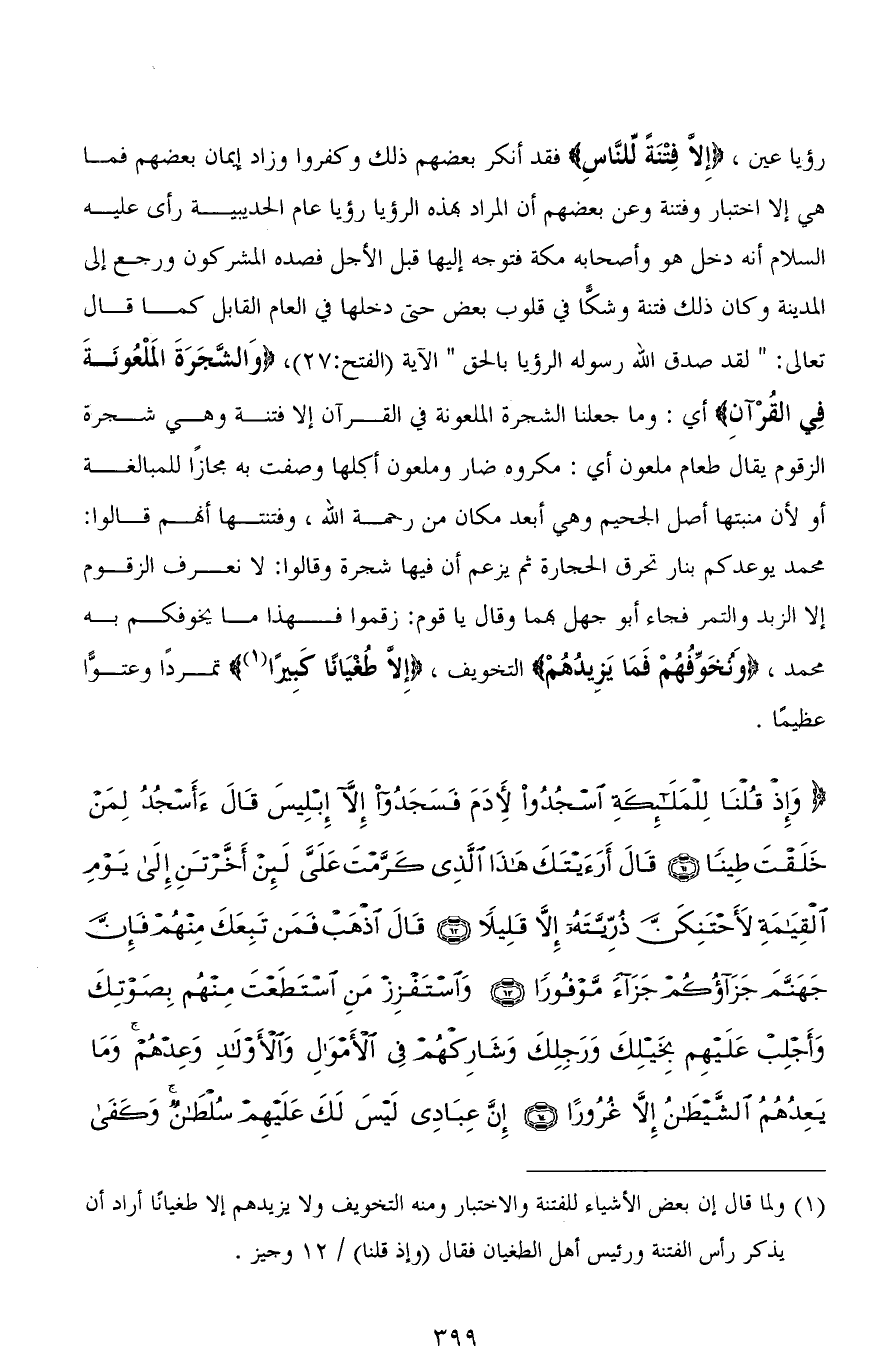 رؤيا عين ، ﴿إِلاَّ فِتْنَةً لِّلنَّاسِ﴾ فقد أنكر بعضهم ذلك وكفروا وزاد إيمان بعضهم فما
هي إلا اختبار وفتنة وعن بعضهم أن المراد بهذه الرؤيا رؤيا عام الحديبية رأى عليه
السلام أنه دخل هو وأصحابه مكة فتوجه إليها قبل الأجل فصده المشركون ورجع إلى
المدينة وكان ذلك فتنة وشكًّا في قلوب بعض حتى دخلها في العام القابل كما قال
تعالى: " لقد صدق الله رسوله الرؤيا بالحق " الآية (الفتح:٢٧)، ﴿وَالشَّجَرَةَ المَلْعُونَةَ
فِي القُرْآنِ﴾ أي : وما جعلنا الشجرة الملعونة في القرآن إلا فتنة وهي شجرة
الزقوم يقال طعام ملعون أي : مكروه ضار وملعون أكلها وصفت به مجازًا للمبالغة
أو لأن منبتها أصل الجحيم وهي أبعد مكان من رحمة الله ، وفتنتها أنهم قالوا:
محمد يوعدكم بنار تحرق الحجارة ثم يزعم أن فيها شجرة وقالوا: لا نعرف الزقوم
إلا الزبد والتمر فجاء أبو جهل بهما وقال يا قوم: زقموا فهذا ما يخوفكم به
محمد ، ﴿وَنُخَوِّفُهُمْ فَمَا يَزِيدُهُمْ﴾ التخويف ، ﴿إِلاَّ طُغْيَانًا كَبِيرًا(١)﴾ تمردًا وعتوًّا
عظيمًا .
﴿ وَإِذْ قُلْنَا لِلْمَلَٰٓئِكَةِ ٱسْجُدُوا۟ لِأَدَمَ فَسَجَدُوٓا۟ إِلَّآ إِبْلِيسَ قَالَ ءَأَسْجُدُ لِمَنْ
خَلَقْتَ طِينًا ۝٦١ قَالَ أَرَءَيْتَكَ هَٰذَا ٱلَّذِى كَرَّمْتَ عَلَىَّ لَئِنْ أَخَّرْتَنِ إِلَىٰ يَوْمِ
ٱلْقِيَٰمَةِ لَأَحْتَنِكَنَّ ذُرِّيَّتَهُۥٓ إِلَّا قَلِيلًا ۝٦٢ قَالَ ٱذْهَبْ فَمَن تَبِعَكَ مِنْهُمْ فَإِنَّ
جَهَنَّمَ جَزَآؤُكُمْ جَزَآءً مَّوْفُورًا ۝٦٣ وَٱسْتَفْزِزْ مَنِ ٱسْتَطَعْتَ مِنْهُم بِصَوْتِكَ
وَأَجْلِبْ عَلَيْهِم بِخَيْلِكَ وَرَجِلِكَ وَشَارِكْهُمْ فِى ٱلْأَمْوَٰلِ وَٱلْأَوْلَٰدِ وَعِدْهُمْ ۚ وَمَا
يَعِدُهُمُ ٱلشَّيْطَٰنُ إِلَّا غُرُورًا ۝٦٤ إِنَّ عِبَادِى لَيْسَ لَكَ عَلَيْهِمْ سُلْطَٰنٌ ۚ وَكَفَىٰ
(١) ولما قال إن بعض الأشياء للفتنة والاختبار ومنه التخويف ولا يزيدهم إلا طغيانًا أراد أن
يذكر رأس الفتنة ورئيس أهل الطغيان فقال (وإذ قلنا) / ١٢ وجيز .
٣٩٩